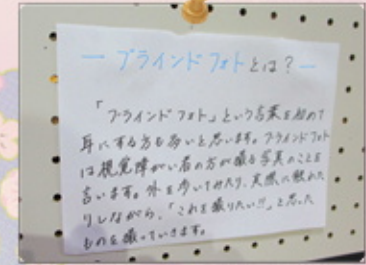 ー ブラインドフォトとは？ー
「ブラインドフォト」という言葉を初めて
耳にする方も多いと思います。ブラインドフォト
は視覚障がい者の方が撮る写真のことを
言います。外を歩いてみたり、実際に触れた
りしながら、「これを撮りたい!!」と思った
ものを撮っていきます。